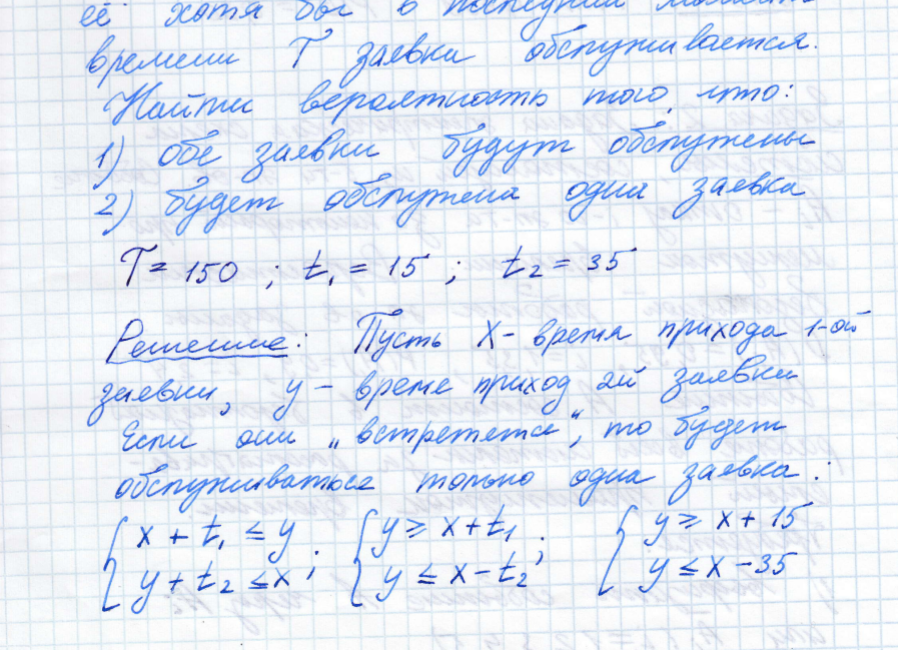 её хотя бы в последний момент
времени T заявка обслуживается.
Найти вероятность того, что:
1) обе заявки будут обслужены
2) будет обслужена одна заявка
T = 150 ; t₁ = 15 ; t₂ = 35
Решение: Пусть X - время прихода 1-ой
заявки, y - време приход 2й заявки
Если они „встретятся“, то будет
обслуживаться только одна заявка:
{ x + t₁ ≤ y ; { y ≥ x + t₁ ; { y ≥ x + 15
{ y + t₂ ≤ x ; { y ≤ x - t₂ ; { y ≤ x - 35